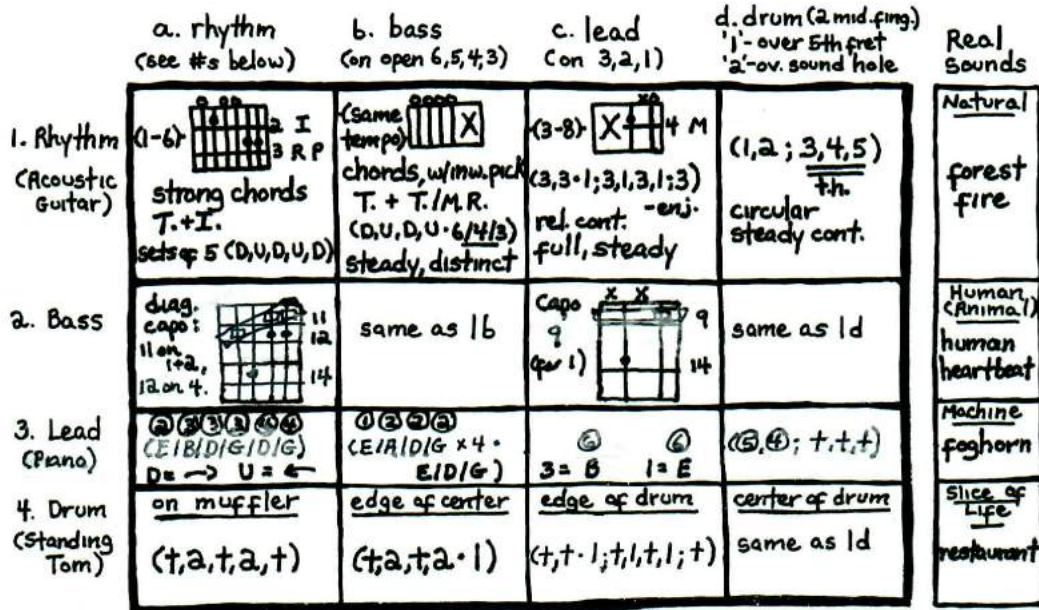 a. rhythm
(see #s below)
b. bass
(on open 6,5,4,3)
c. lead
(on 3,2,1)
d. drum (2 mid. fing.)
'1'- over 5th fret
'2'-ov. sound hole
Real
Sounds
1. Rhythm
(Acoustic
Guitar)
o oo
(1-6)
2 I
3 R P
strong chords
T.+I.
sets of 5 (D,U,D,U,D)
(same
tempo)
oooo
X
chords, w/inw. pick
T. + T./M.R.
(D,U,D,U·6/4/3)
steady, distinct
xo
(3-8)
X
4 M
(3,3·1;3,1,3,1;3)
-enj.
rel. cont.
full, steady
(1,2; 3,4,5)
t.h.
circular
steady cont.
Natural
forest
fire
2. Bass
diag.
capo:
11 on
1+2,
12 on 4.
11
12
14
same as 1b
Capo
9
(for 1)
x x
9
14
same as 1d
Human
(Animal)
human
heartbeat
3. Lead
(Piano)
(E/B/D/G/D/G)
D= → U= ←
① ② ② ②
(E/A/D/G x4·
E/D/G)
⑥ ⑥
3= B 1= E
(⑤,④; t,t,t)
Machine
foghorn
4. Drum
(Standing
Tom)
on muffler
(t,2,t,2,t)
edge of center
(t,2,t,2·1)
edge of drum
(t,t·1;t,1,t,1;t)
center of drum
same as 1d
Slice of
Life
restaurant